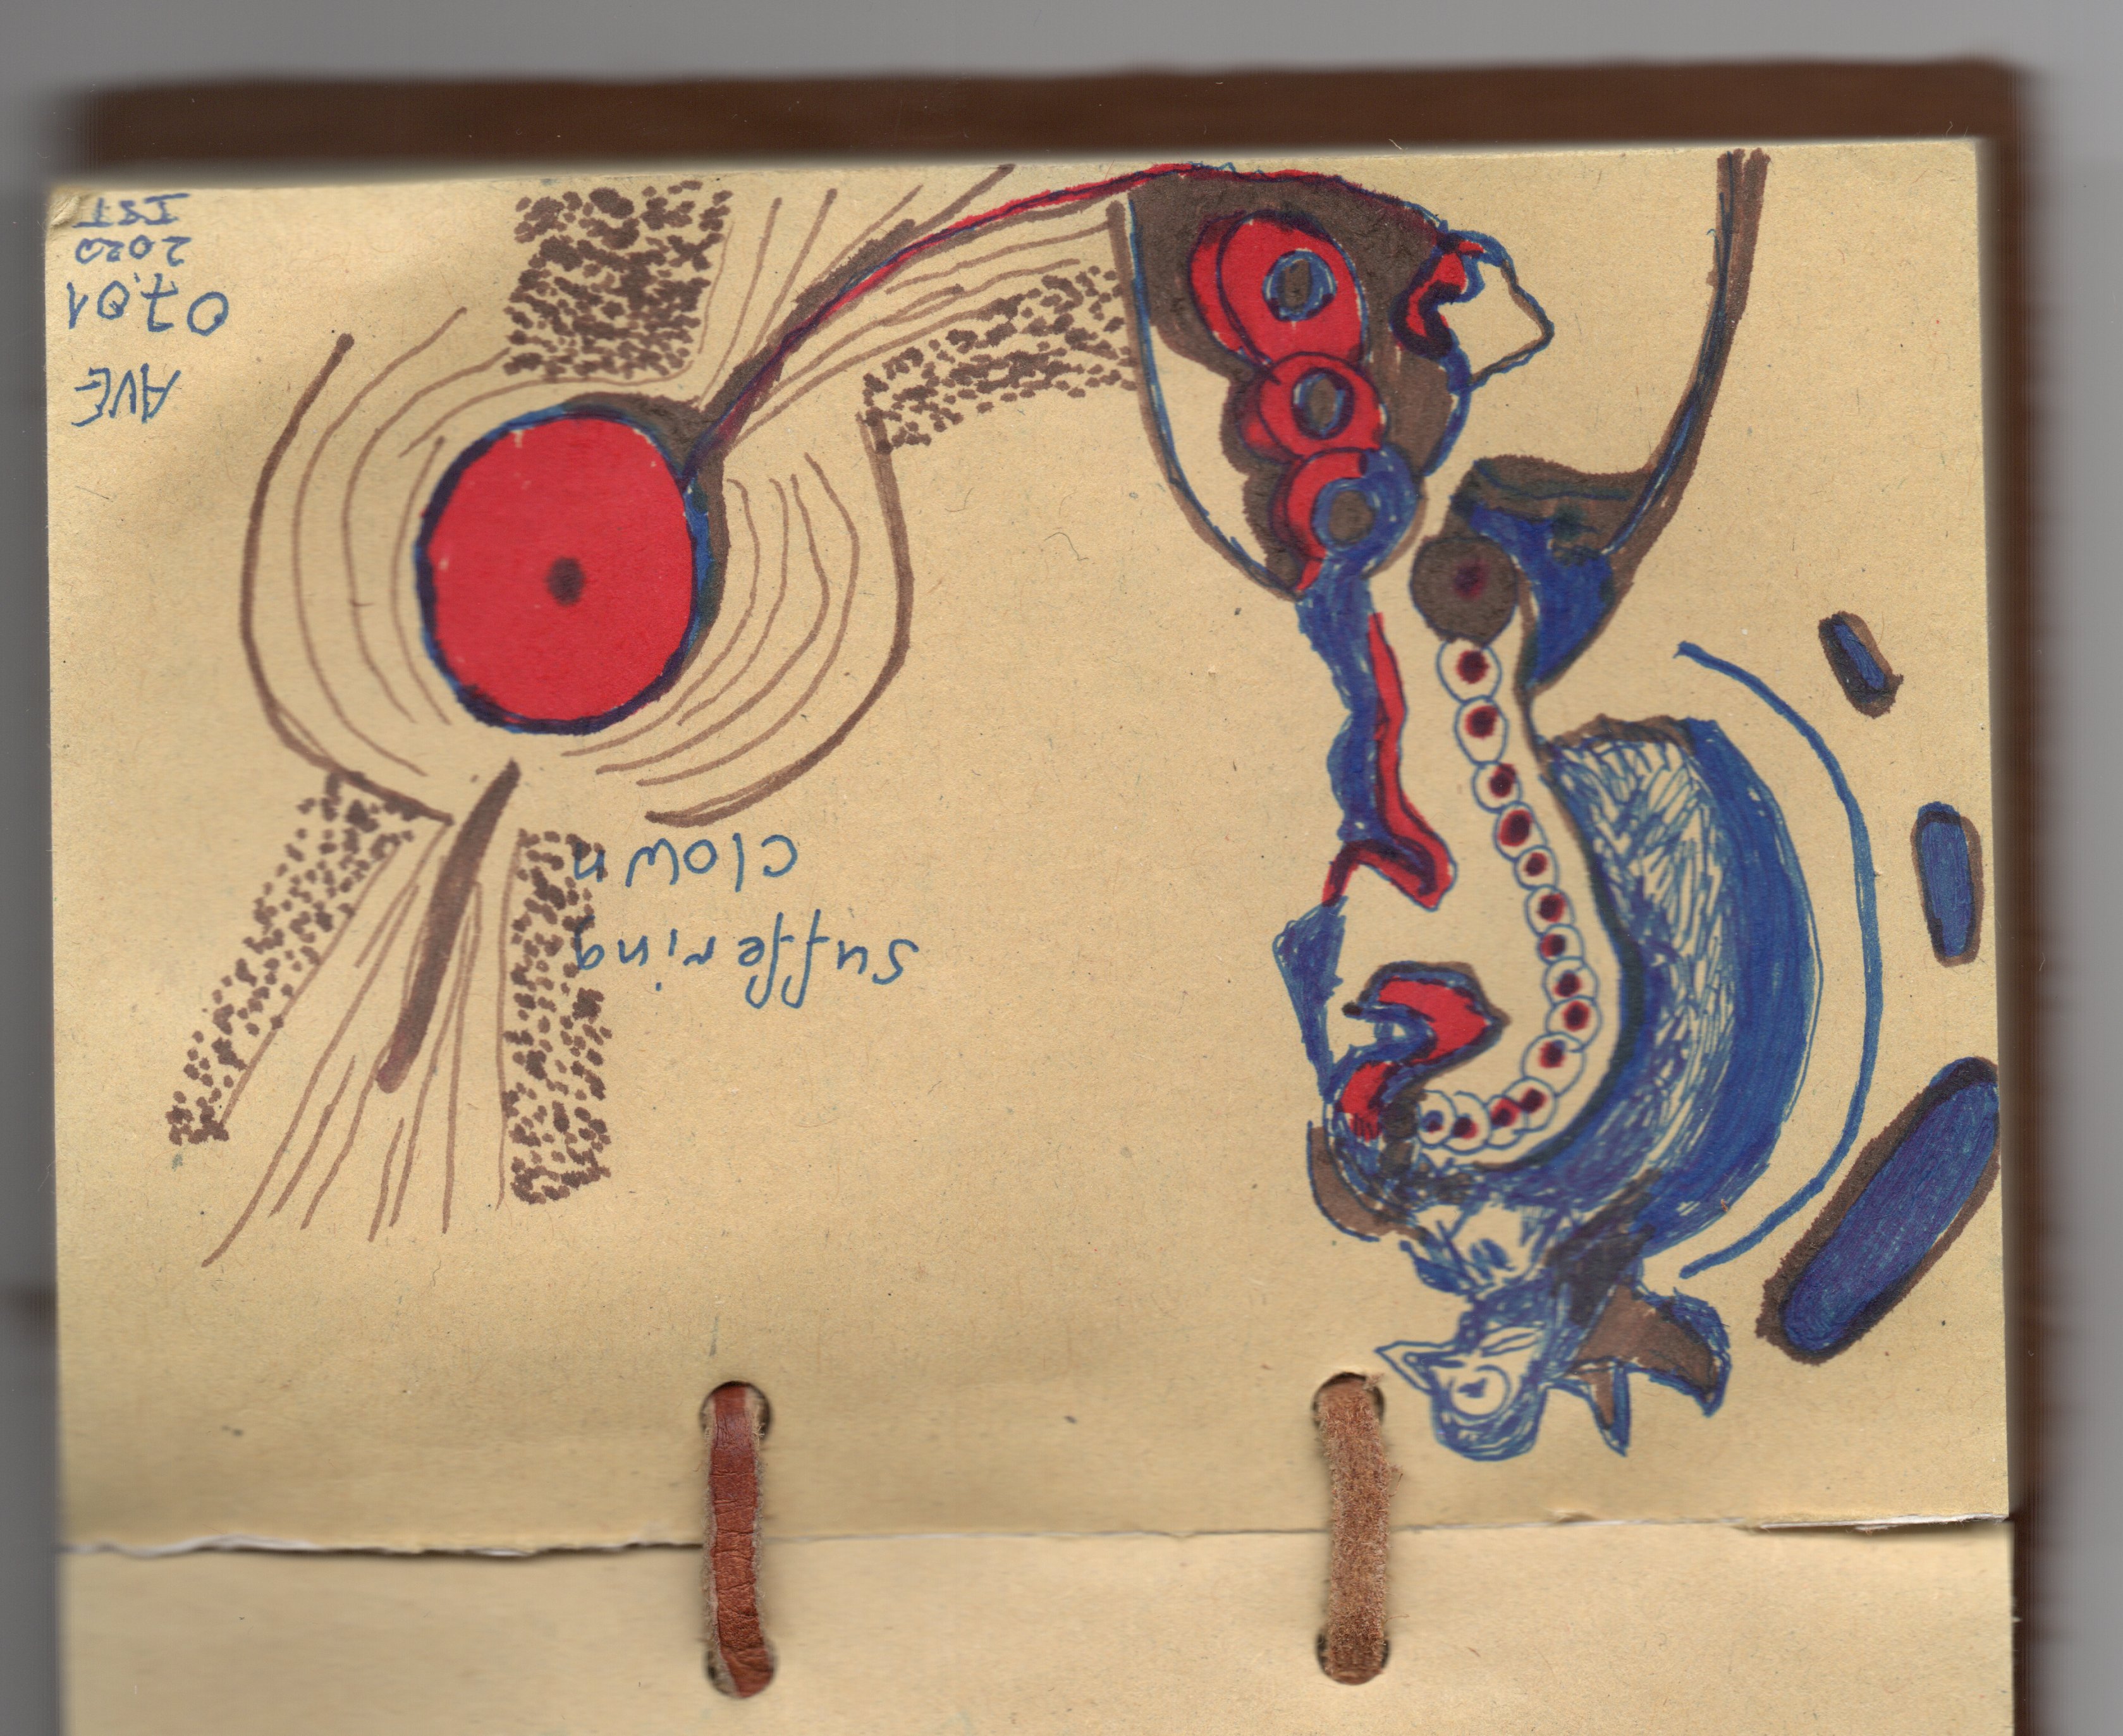 suffering
clown
AVE
07.01
2020
IST